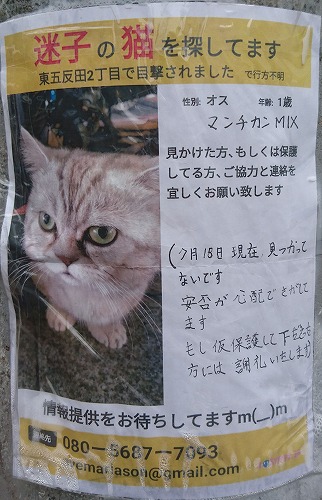 迷子の猫を探してます
東五反田2丁目で目撃されました で行方不明
性別: オス 年齢: 1歳
マンチカンMIX
見かけた方、もしくは保護
してる方、ご協力と連絡を
宜しくお願い致します
(7月18日 現在 見つかって
ないです
安否が心配でさがして
ます
もし仮保護して下さった
方には謝礼いたします)
情報提供をお待ちしてますm(__)m
絡先 080ー5687ー7093
emariason@gmail.com